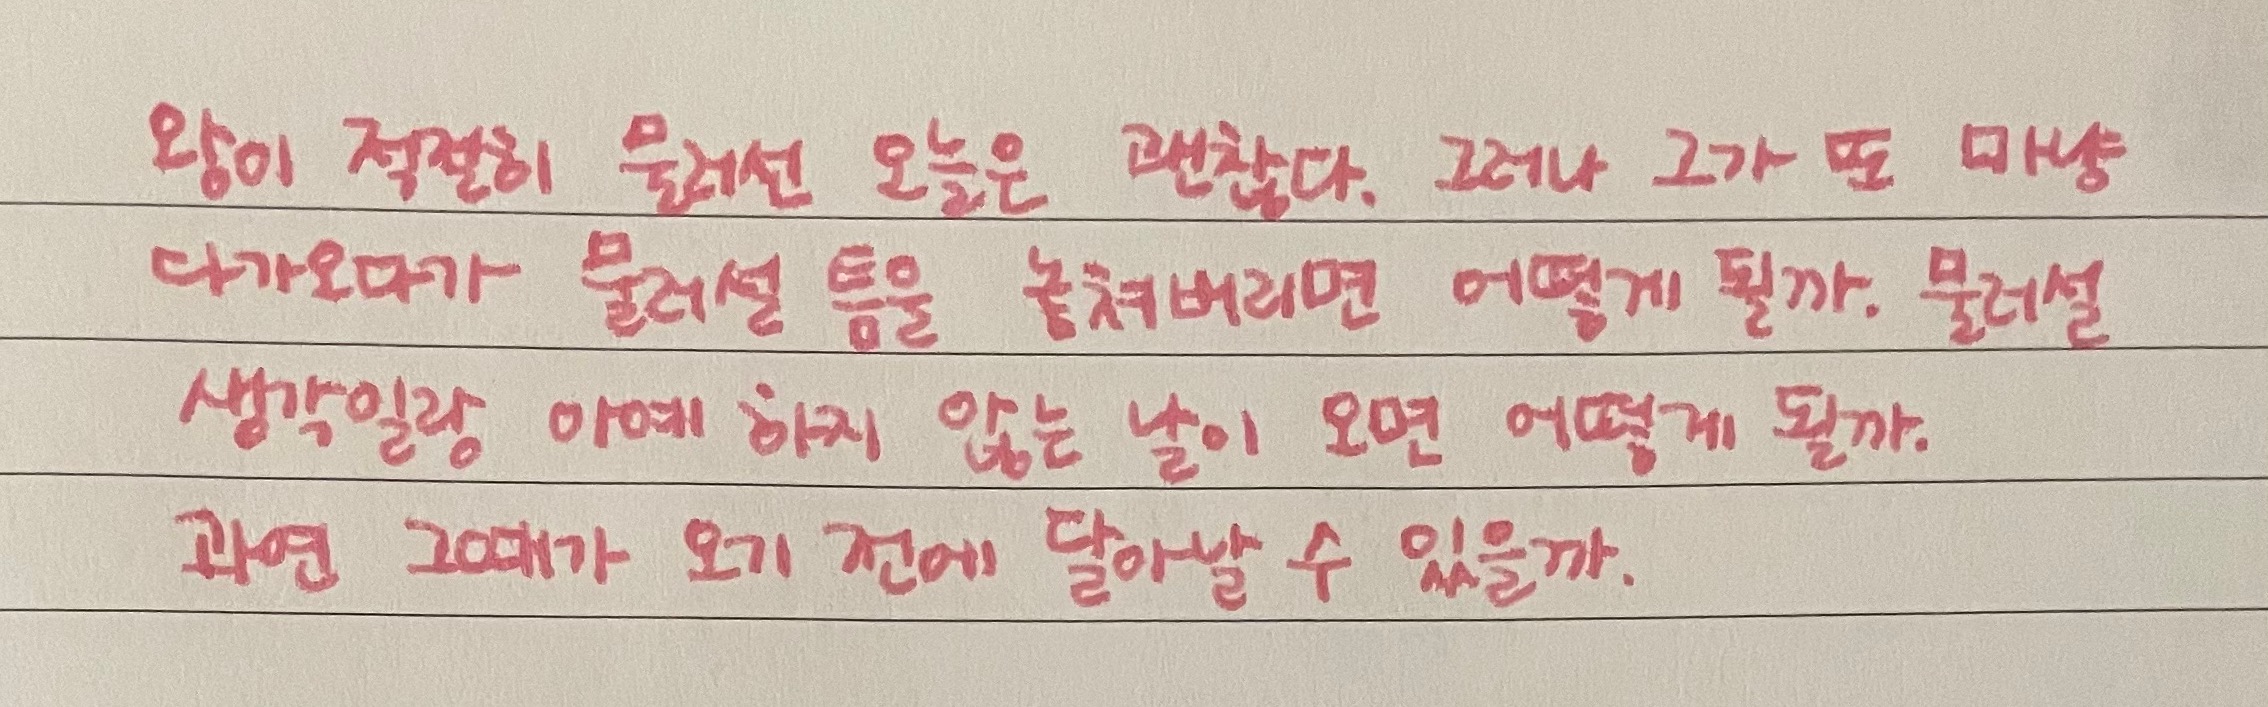 왕이 적절히 물러선 오늘은 괜찮다. 그러나 그가 또 마냥
다가오다가 물러설 틈을 놓쳐버리면 어떻게 될까. 물러설
생각일랑 아예 하지 않는 날이 오면 어떻게 될까.
과연 그때가 오기 전에 달아날 수 있을까.